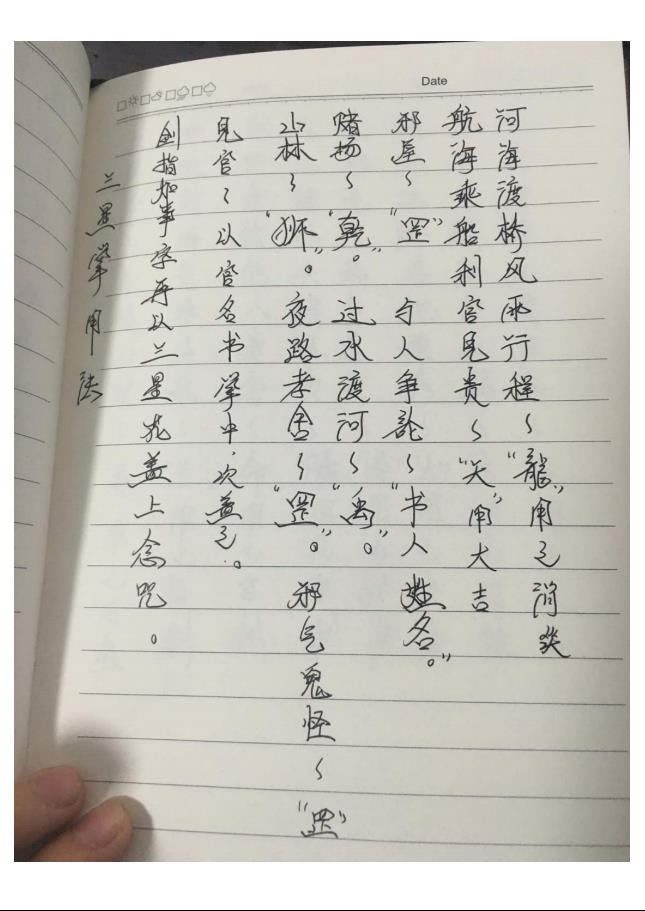 Date
河海渡桥风雨行程～“龍”用之消災
航海乘船利官見贵～“天”用大吉
邪屋～“罡”与人争論～“书人姓名。”
赌场～“乾”。过水渡河～“禹”。
山林～“狮”。夜路孝舍～“罡”。邪气鬼怪～“罡”
見官～以官名书掌中，次盖之。
剑指如事字再以三星光盖上念咒。
三星掌用法